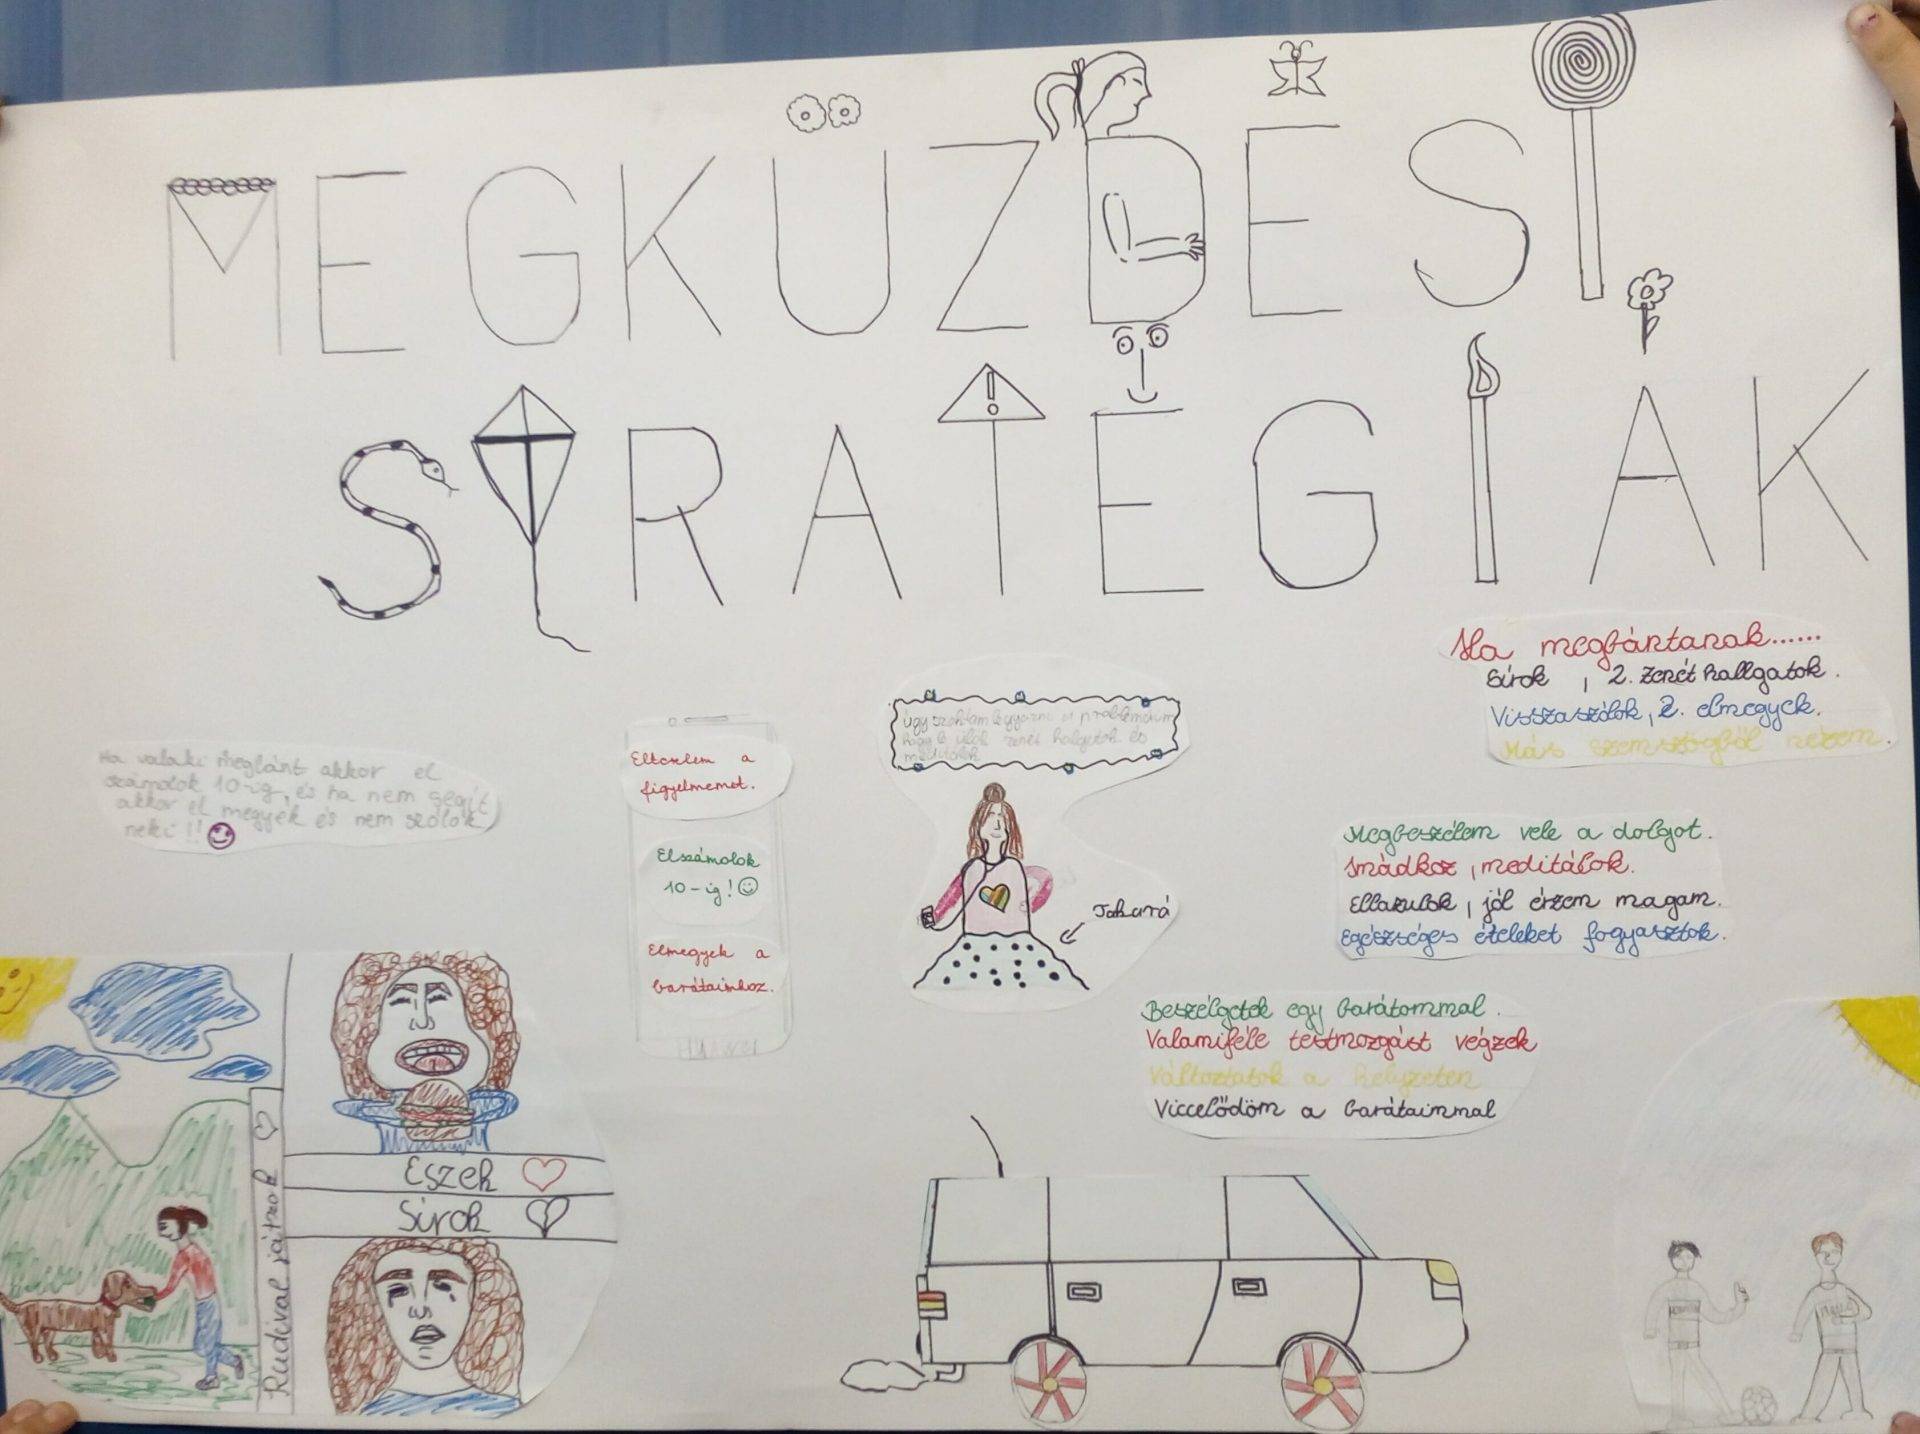 MEGKÜZDÉSI
STRATÉGIÁK
Ha megbántanak......
Sírok, 2. zenét hallgatok.
Visszaszólok, 2. elmegyek.
Más szemszögből nézem.
Ha valaki megbánt akkor el
számolok 10-ig, és ha nem segít
akkor el megyek és nem szólok
neki!!
Elterelem a
figyelmemet.
Elszámolok
10-ig!
Elmegyek a
barátaimhoz.
HUAWEI
úgy szoktam legyőzni a problémáim
hogy le ülök zenét halgatok és
meditálok
Takaró
Megbeszélem vele a dolgot.
Imádkoz, meditálok.
Ellazulok, jól érzem magam.
Egészséges ételeket fogyasztok.
Beszélgetek egy barátommal.
Valamiféle testmozgást végzek
Változtatok a helyzeten
Viccelődöm a barátaimmal
Rudival játszok
Eszek
Sírok